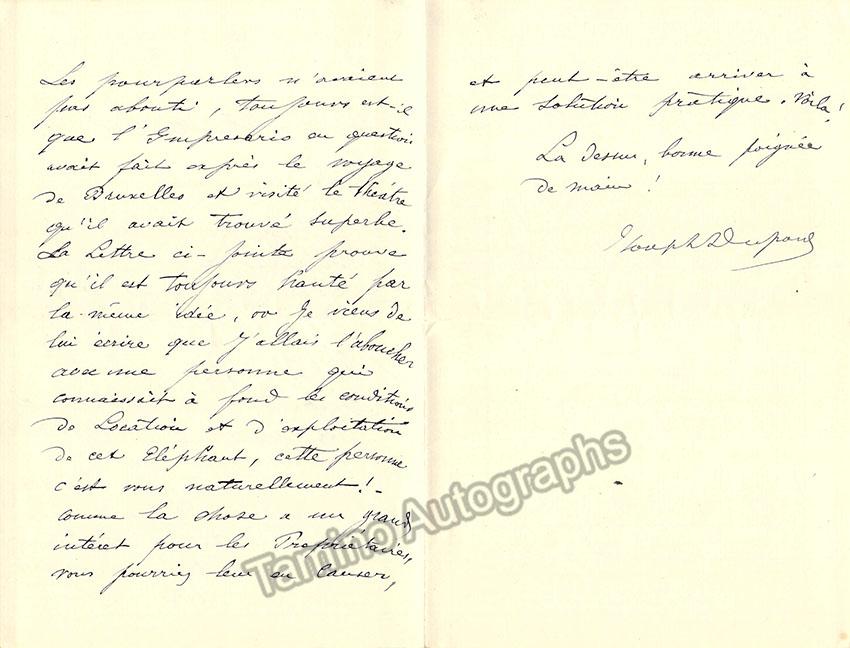 Les pourparlers n'avaient
pas abouti, toujours est-il
que l'Impresario en question
avait fait exprès le voyage
de Bruxelles et visité le théâtre
qu'il avait trouvé superbe.
La Lettre ci-jointe prouve
qu'il est toujours hanté par
la même idée, or Je viens de
lui écrire que J'allais l'aboucher
avec une personne qui
connaissait à fond les conditions
de Location et d'exploitation
de cet Eléphant, cette personne
c'est vous naturellement! -
Comme la chose a un grand
intérêt pour les Propriétaires,
vous pourriez leur en Causer,
et peut-être arriver à
une solution pratique. Voilà!
La dessus, bonne poignée
de main!
Joseph Dupont
Tamino Autographs